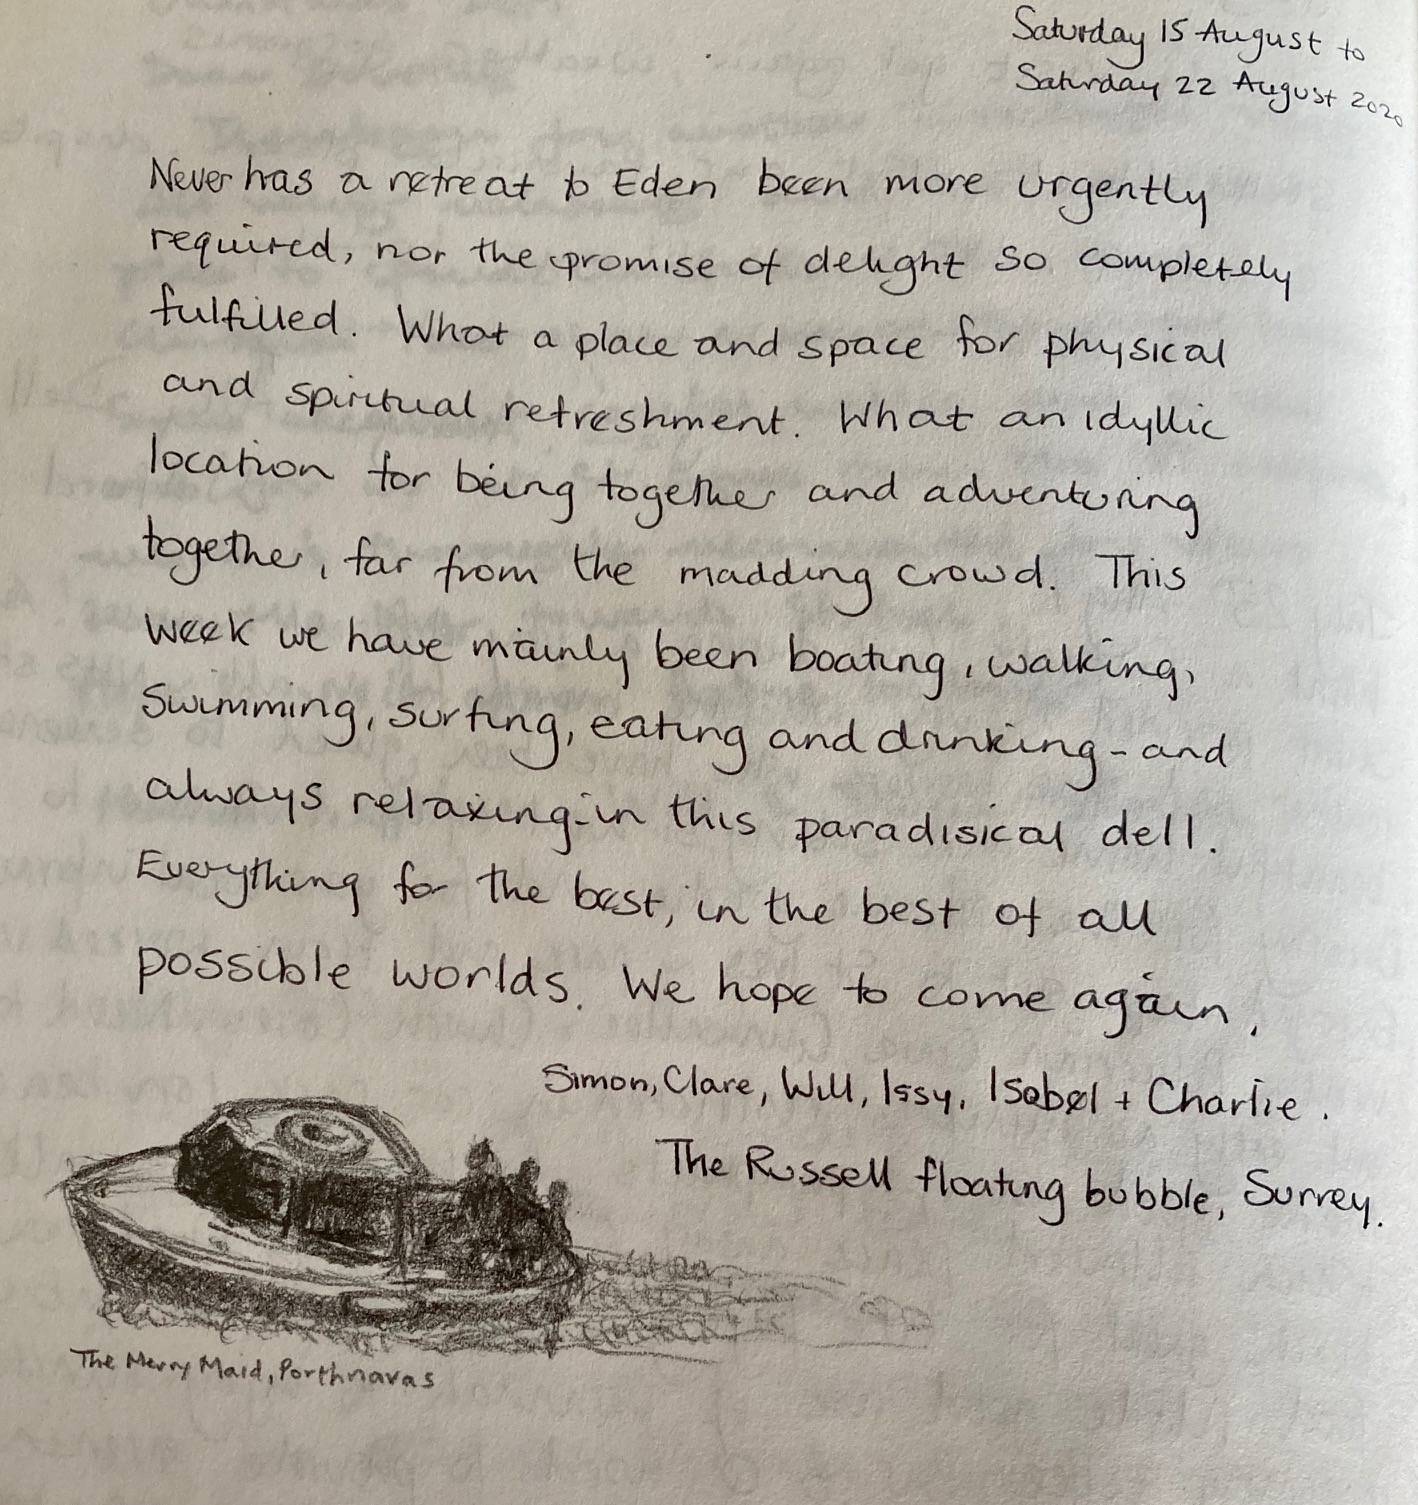 Saturday 15 August to
Saturday 22 August 2020
Never has a retreat to Eden been more urgently
required, nor the promise of delight so completely
fulfilled. What a place and space for physical
and spiritual refreshment. What an idyllic
location for being together and adventuring
together, far from the madding crowd. This
week we have mainly been boating, walking,
swimming, surfing, eating and drinking - and
always relaxing - in this paradisical dell.
Everything for the best, in the best of all
possible worlds. We hope to come again.
Simon, Clare, Will, Issy, Isobel + Charlie.
The Russell floating bubble, Surrey.
The Merry Maid, Porthnavas